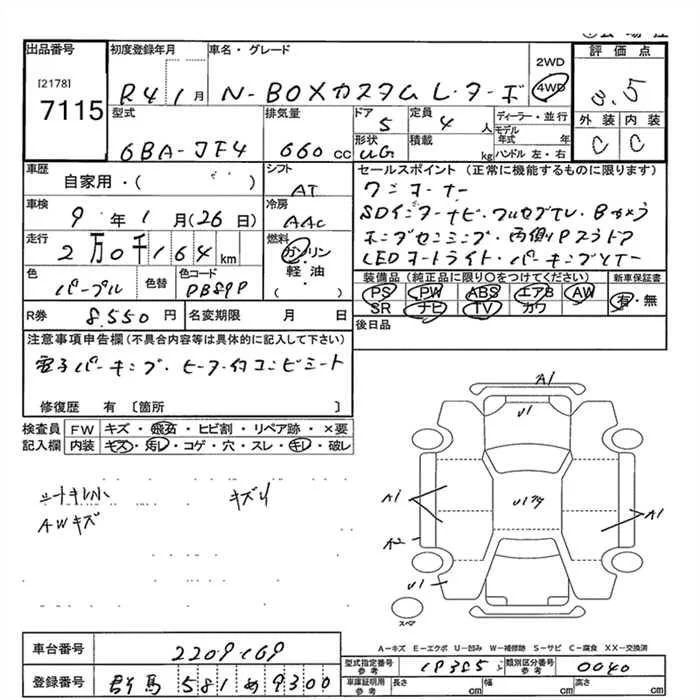 出品番号 初度登録年月 車名・グレード 2WD 4WD 評価点
[2178]
7115
R4 1月 N-BOXカスタム L・ターボ 3.5
型式 排気量 ドア 定員 ディーラー・並行 外装 内装
6BA-JF4 660cc 5 4人 モデル年式 年 C C
形状 積載 ハンドル 左・右
UG kg
車歴 シフト セールスポイント(正常に機能するものに限ります)
自家用・( ) AT ワンオーナー
車検 冷房 SDインターナビ・フルセグTV・Bカメラ
9年1月(26日) AAC ホンダセンシング・両側Pスラドア
走行 燃料 LEDオートライト・パーキングソナー
2万0千164km ガソリン
軽油・
( )
色 色替 色コード 装備品(純正品に限り○をつけてください) 新車保証書
パープル PB89P PS PW ABS エアB AW 有・無
SR ナビ TV カワ
R券 8,550円 名変期限 月 日 後日品
注意事項申告欄(不具合内容等は具体的に記入して下さい)
電子パーキング・ヒーター付コンビシート
修復歴 有 [箇所 ]
検査員 FW キズ・飛石・ヒビ割・リペア跡・×要
記入欄 内装 キズ・汚レ・コゲ・穴・スレ・キレ・破レ
シートキレ小 キズ小
AWキズ
A1
U1
A1
U1
A1
A2
U1
スペア
A-キズ E-エクボ U-凹み W-補修跡 S-サビ C-腐食 XX-交換済
車台番号 2209169
型式指定番号 参考 19385 類別区分番号 参考 0040
登録番号 群馬 581 め 9300
車庫証明用 参考 長さ cm 幅 cm 高さ cm